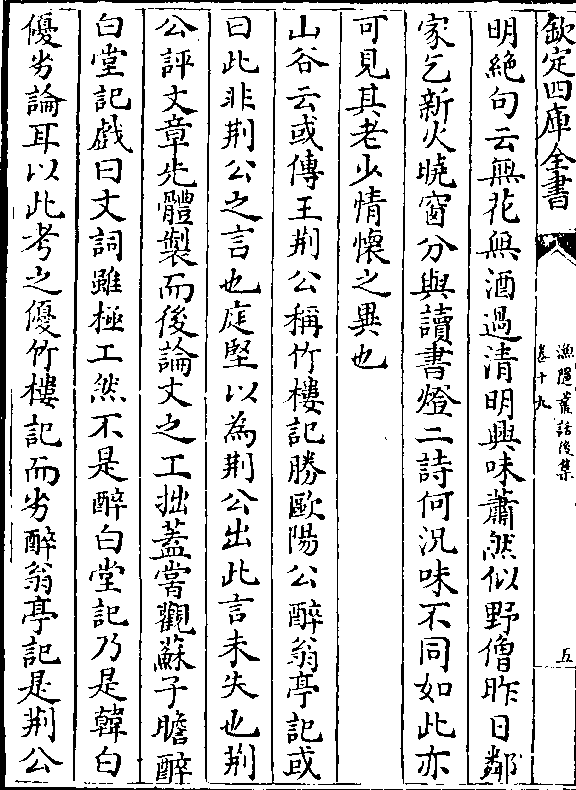 欽定四庫全書
漁隱叢話後集
卷十九
五
明絶句云無花無酒過清明興味蕭然似野僧昨日鄰
家乞新火曉窗分與讀書燈二詩何況味不同如此亦
可見其老少情懷之異也
山谷云或傳王荆公稱竹樓記勝歐陽公醉翁亭記或
曰此非荆公之言也庭堅以為荆公出此言未失也荆
公評文章先體製而後論文之工拙蓋嘗觀蘇子瞻醉
白堂記戲曰文詞雖極工然不是醉白堂記乃是韓白
優劣論耳以此考之優竹樓記而劣醉翁亭記是荆公